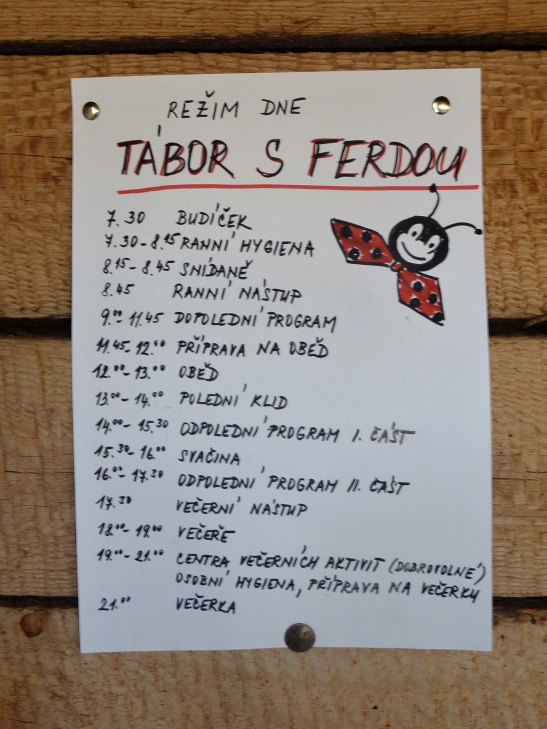 REŽIM DNE
TÁBOR S FERDOU
7.30 BUDÍČEK
7.30 - 8.15 RANNÍ HYGIENA
8.15 - 8.45 SNÍDANĚ
8.45 RANNÍ NÁSTUP
9.00 11.45 DOPOLEDNÍ PROGRAM
11.45 - 12.00 PŘÍPRAVA NA OBĚD
12.00 - 13.00 OBĚD
13.00 - 14.00 POLEDNÍ KLID
14.00 - 15.30 ODPOLEDNÍ PROGRAM I. ČÁST
15.30 - 16.00 SVAČINA
16.00 - 17.30 ODPOLEDNÍ PROGRAM II. ČÁST
17.30 VEČERNÍ NÁSTUP
18.00 - 19.00 VEČEŘE
19.00 - 21.00 CENTRA VEČERNÍCH AKTIVIT (DOBROVOLNÉ)
OSOBNÍ HYGIENA, PŘÍPRAVA NA VEČERKU
21.00 VEČERKA